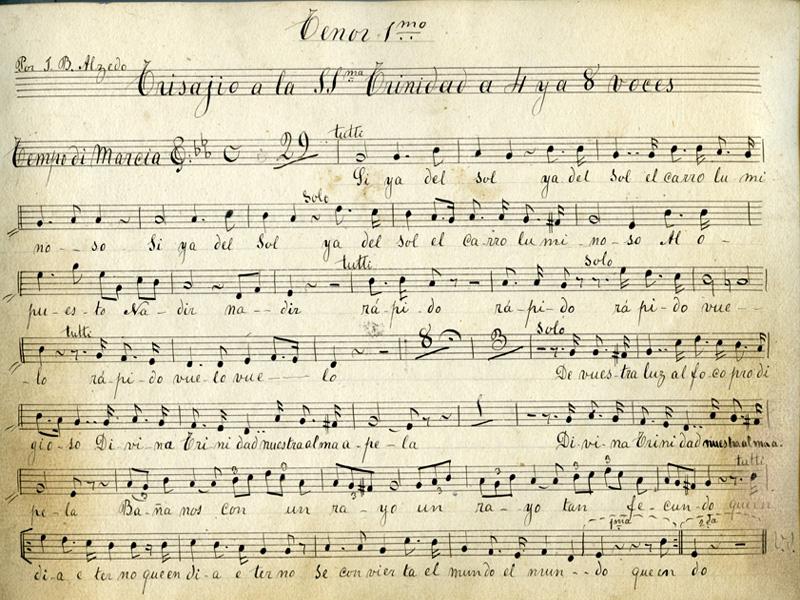 Tenor 1mo
Por J. B. Alzedo
Trisajio a la SSma Trinidad a 4 y a 8 voces
Tempo di Marcia 29 tutti
Si ya del sol ya del Sol el carro lu mi
Solo
no -- so Si ya del Sol ya del sol el Ca-rro lu mi - no - so Al o -
tutti solo
pu - es - to Na - dir na -- dir rá - pi - do rá - pi - do rá pi - do vue --
tutti 8 3 Solo
- lo rá - pi - do vue - lo vue --- lo De vues - tra luz al fo co pro di
1
gio - so Di vi - na Tri ni dad nuestra al ma a - pe - la Di - vi - na Trini dad nuestra al ma a.
3 3 3 3 3 tutti
pe - la Ba - ña nos con un ra - yo un ra - yo tan fe - cun - do que en
1ma 2da
di - a e ter no que en di - a e ter no Se con vier ta el mundo el mun -- do que en do